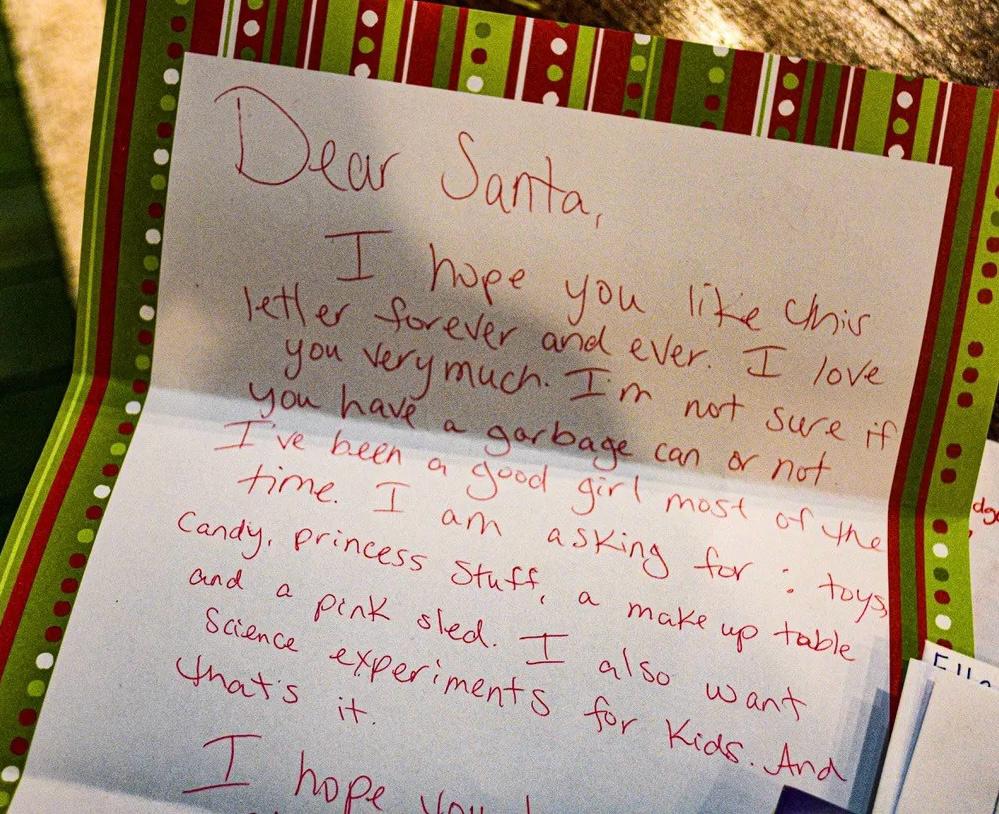 Dear Santa,
I hope you like this
letter forever and ever. I love
you very much. I'm not sure if
you have a garbage can or not.
I've been a good girl most of the
time. I am asking for: toys,
candy, princess stuff, a make up table
and a pink sled. I also want
Science experiments for Kids. And
that's it.
I hope you